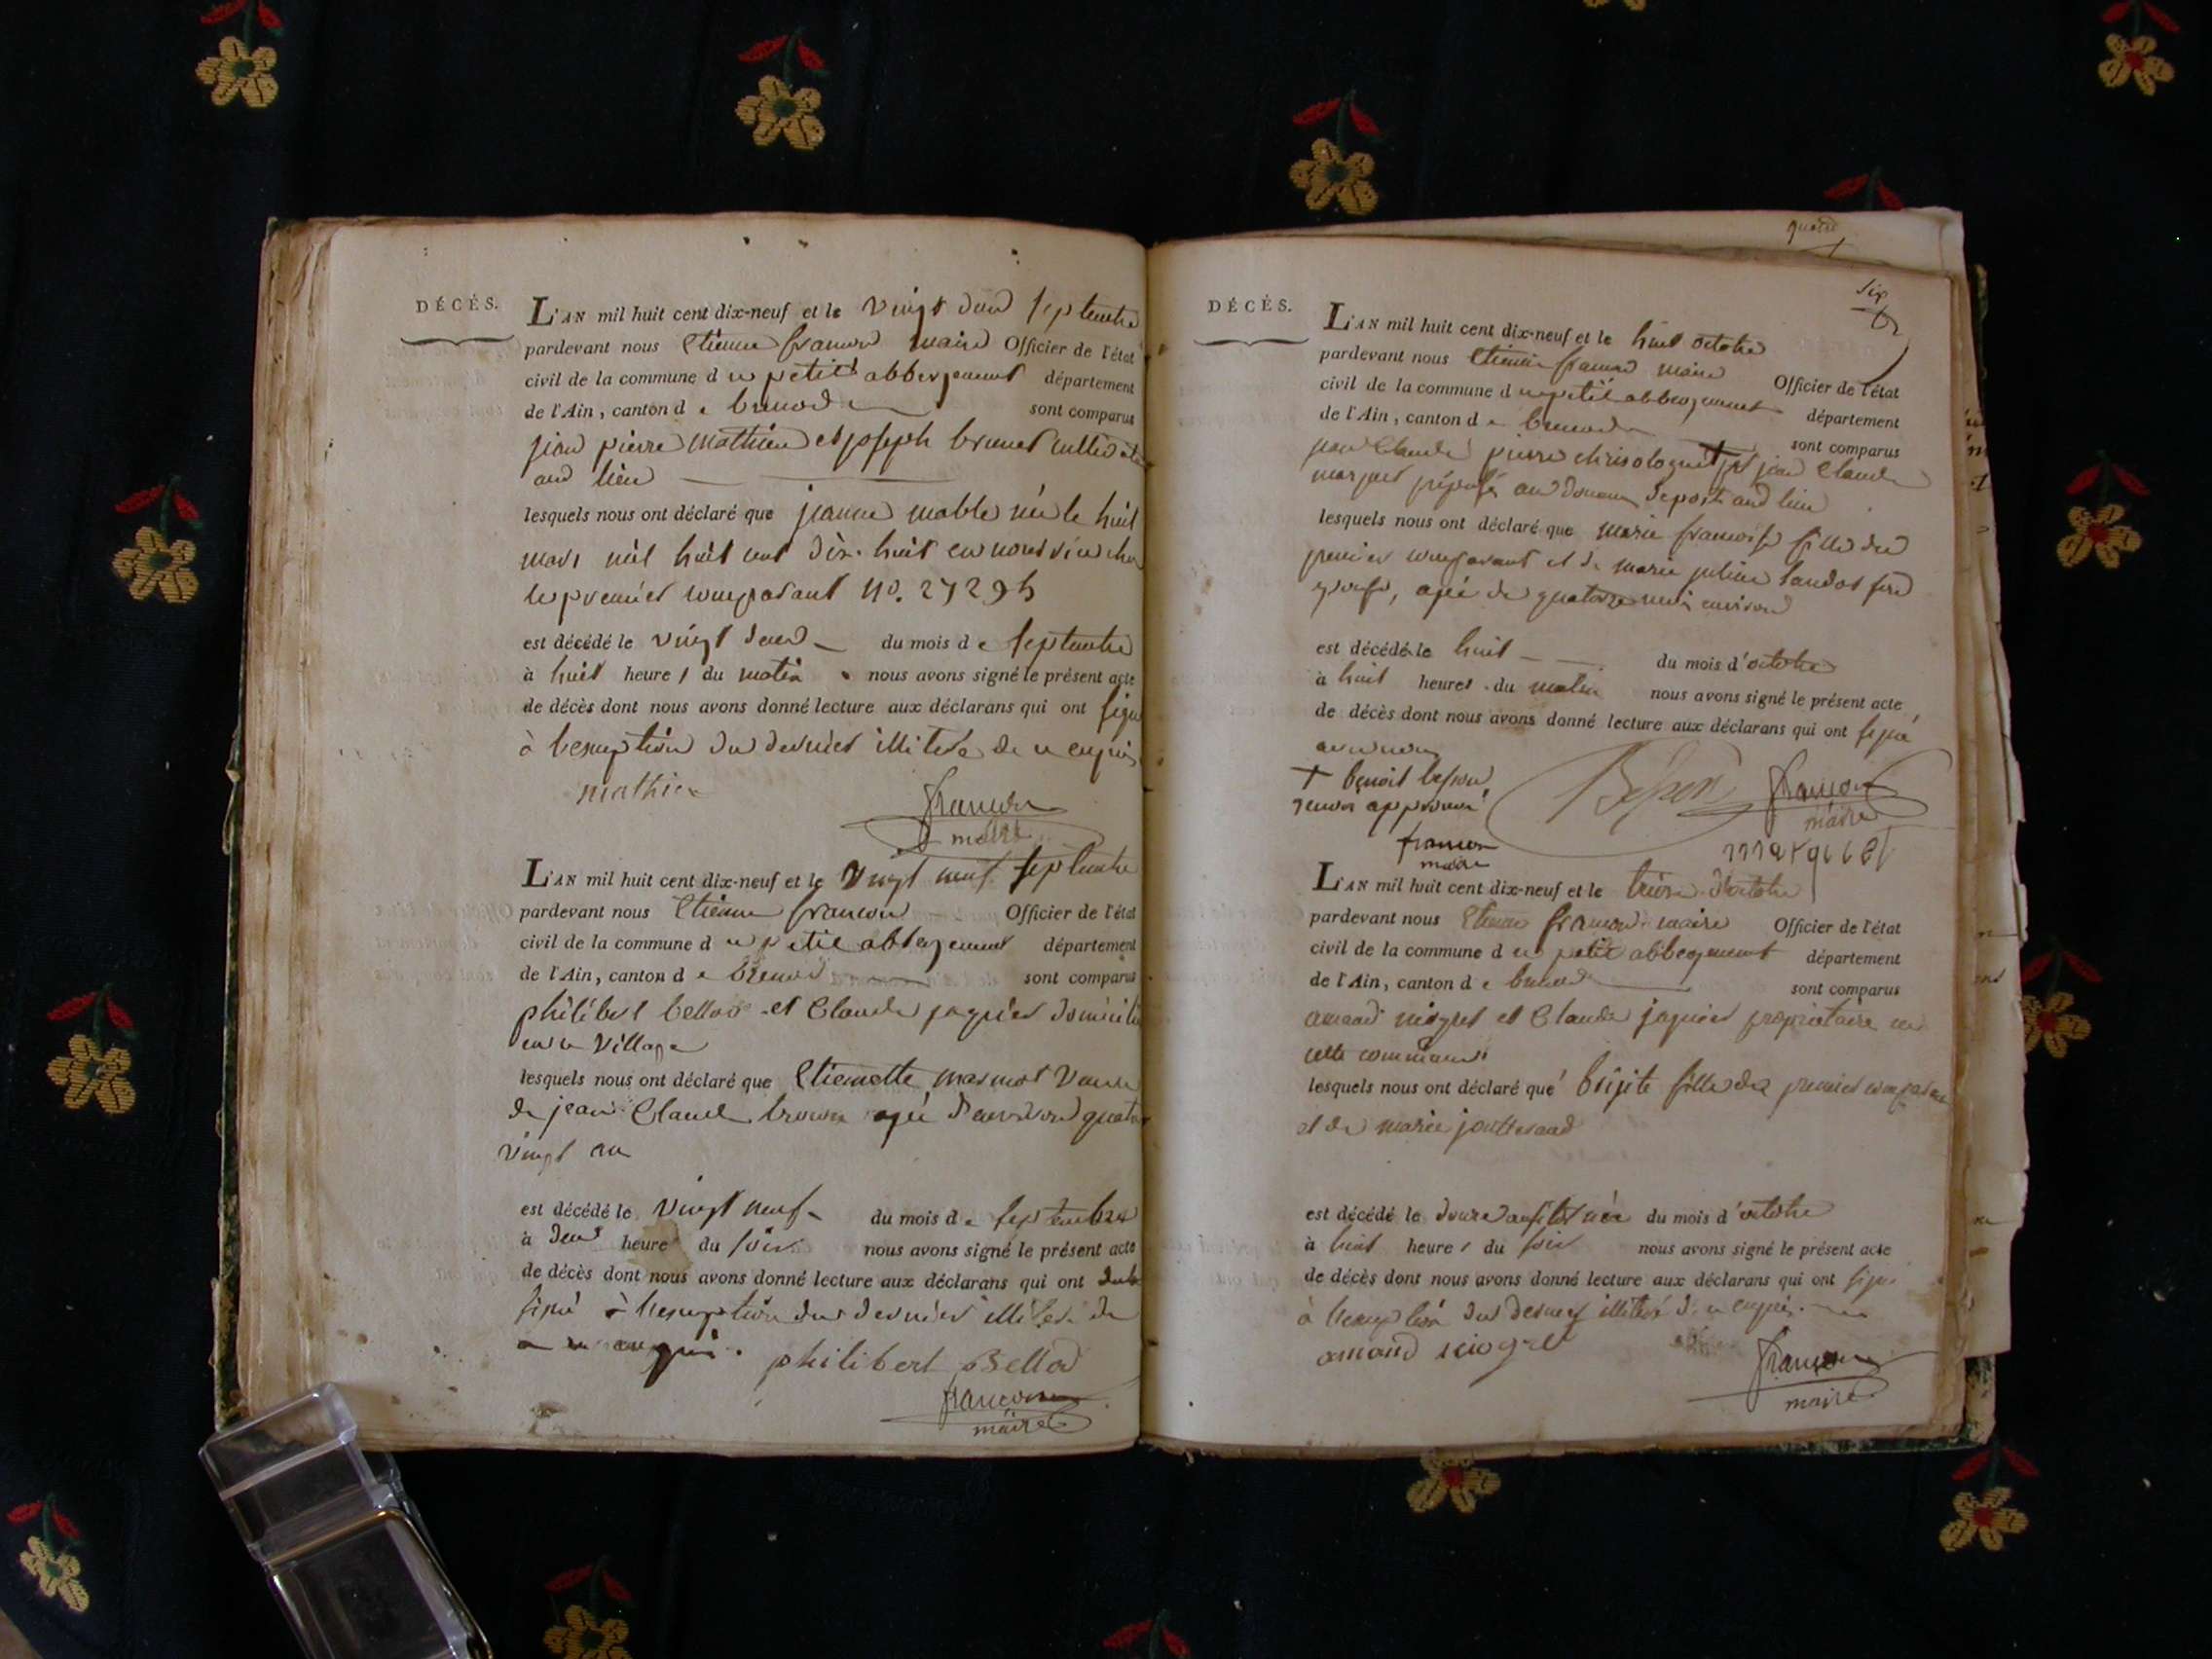 DÉCÈS.
L'AN mil huit cent dix-neuf et le vingt deux septembre
pardevant nous Etienne francon maire Officier de l'état
civil de la commune du petit abbergement département
de l'Ain, canton de brenod sont comparus
jean pierre mathieu et joseph brunet
aud lieu
lesquels nous ont déclaré que jeanne mable née le huit
mars mil huit cent dix-huit en nourrice chez
le premier comparant no. 27295
est décédé le vingt deux du mois de septembre
à huit heures du matin nous avons signé le présent acte
de décès dont nous avons donné lecture aux déclarans qui ont signé
à l'exception du dernier illitéré de ce enquis
mathieu
francon
maire
L'AN mil huit cent dix-neuf et le vingt neuf septembre
pardevant nous Etienne francon Officier de l'état
civil de la commune du petit abbergement département
de l'Ain, canton de brenod sont comparus
philibert bellod et Claude jaquier
en ce village
lesquels nous ont déclaré que Etiennette marmot veuve
de jean Claude agée d'environ quatre
vingt an
est décédé le vingt neuf du mois de septembre
à deux heures du soir nous avons signé le présent acte
de décès dont nous avons donné lecture aux déclarans qui ont
signé à l'exception du dernier illitéré de
ce enquis. philibert Bellod
francon
maire
quatre
six
DÉCÈS.
L'AN mil huit cent dix-neuf et le huit octobre
pardevant nous Etienne francon maire Officier de l'état
civil de la commune du petit abbergement département
de l'Ain, canton de brenod sont comparus
jean Claude pierre chrisologue + et jean Claude
marquet préposés aux douanes au poste aud lieu
lesquels nous ont déclaré que marie françoise fille du
premier comparant et de marie landos son
epouse, agée de quatorze mois environ
est décédé le huit du mois d'octobre
à huit heures du matin nous avons signé le présent acte
de décès dont nous avons donné lecture aux déclarans qui ont signé
avec nous
+ benoit besson
renvoi approuvé
Besson
francon
maire
francon
maire
L'AN mil huit cent dix-neuf et le treize d'octobre
pardevant nous Etienne francon maire Officier de l'état
civil de la commune du petit abbergement département
de l'Ain, canton de brenod sont comparus
amand niogret et Claude jaquier proprietaire en
cette commune
lesquels nous ont déclaré que brijite fille du premier comparant
et de marie joutterand
est décédé le douze aussitot née du mois d'octobre
à huit heures du soir nous avons signé le présent acte
de décès dont nous avons donné lecture aux déclarans qui ont signé
à l'exception du dernier illitéré de ce enquis
amand niogret
francon
maire